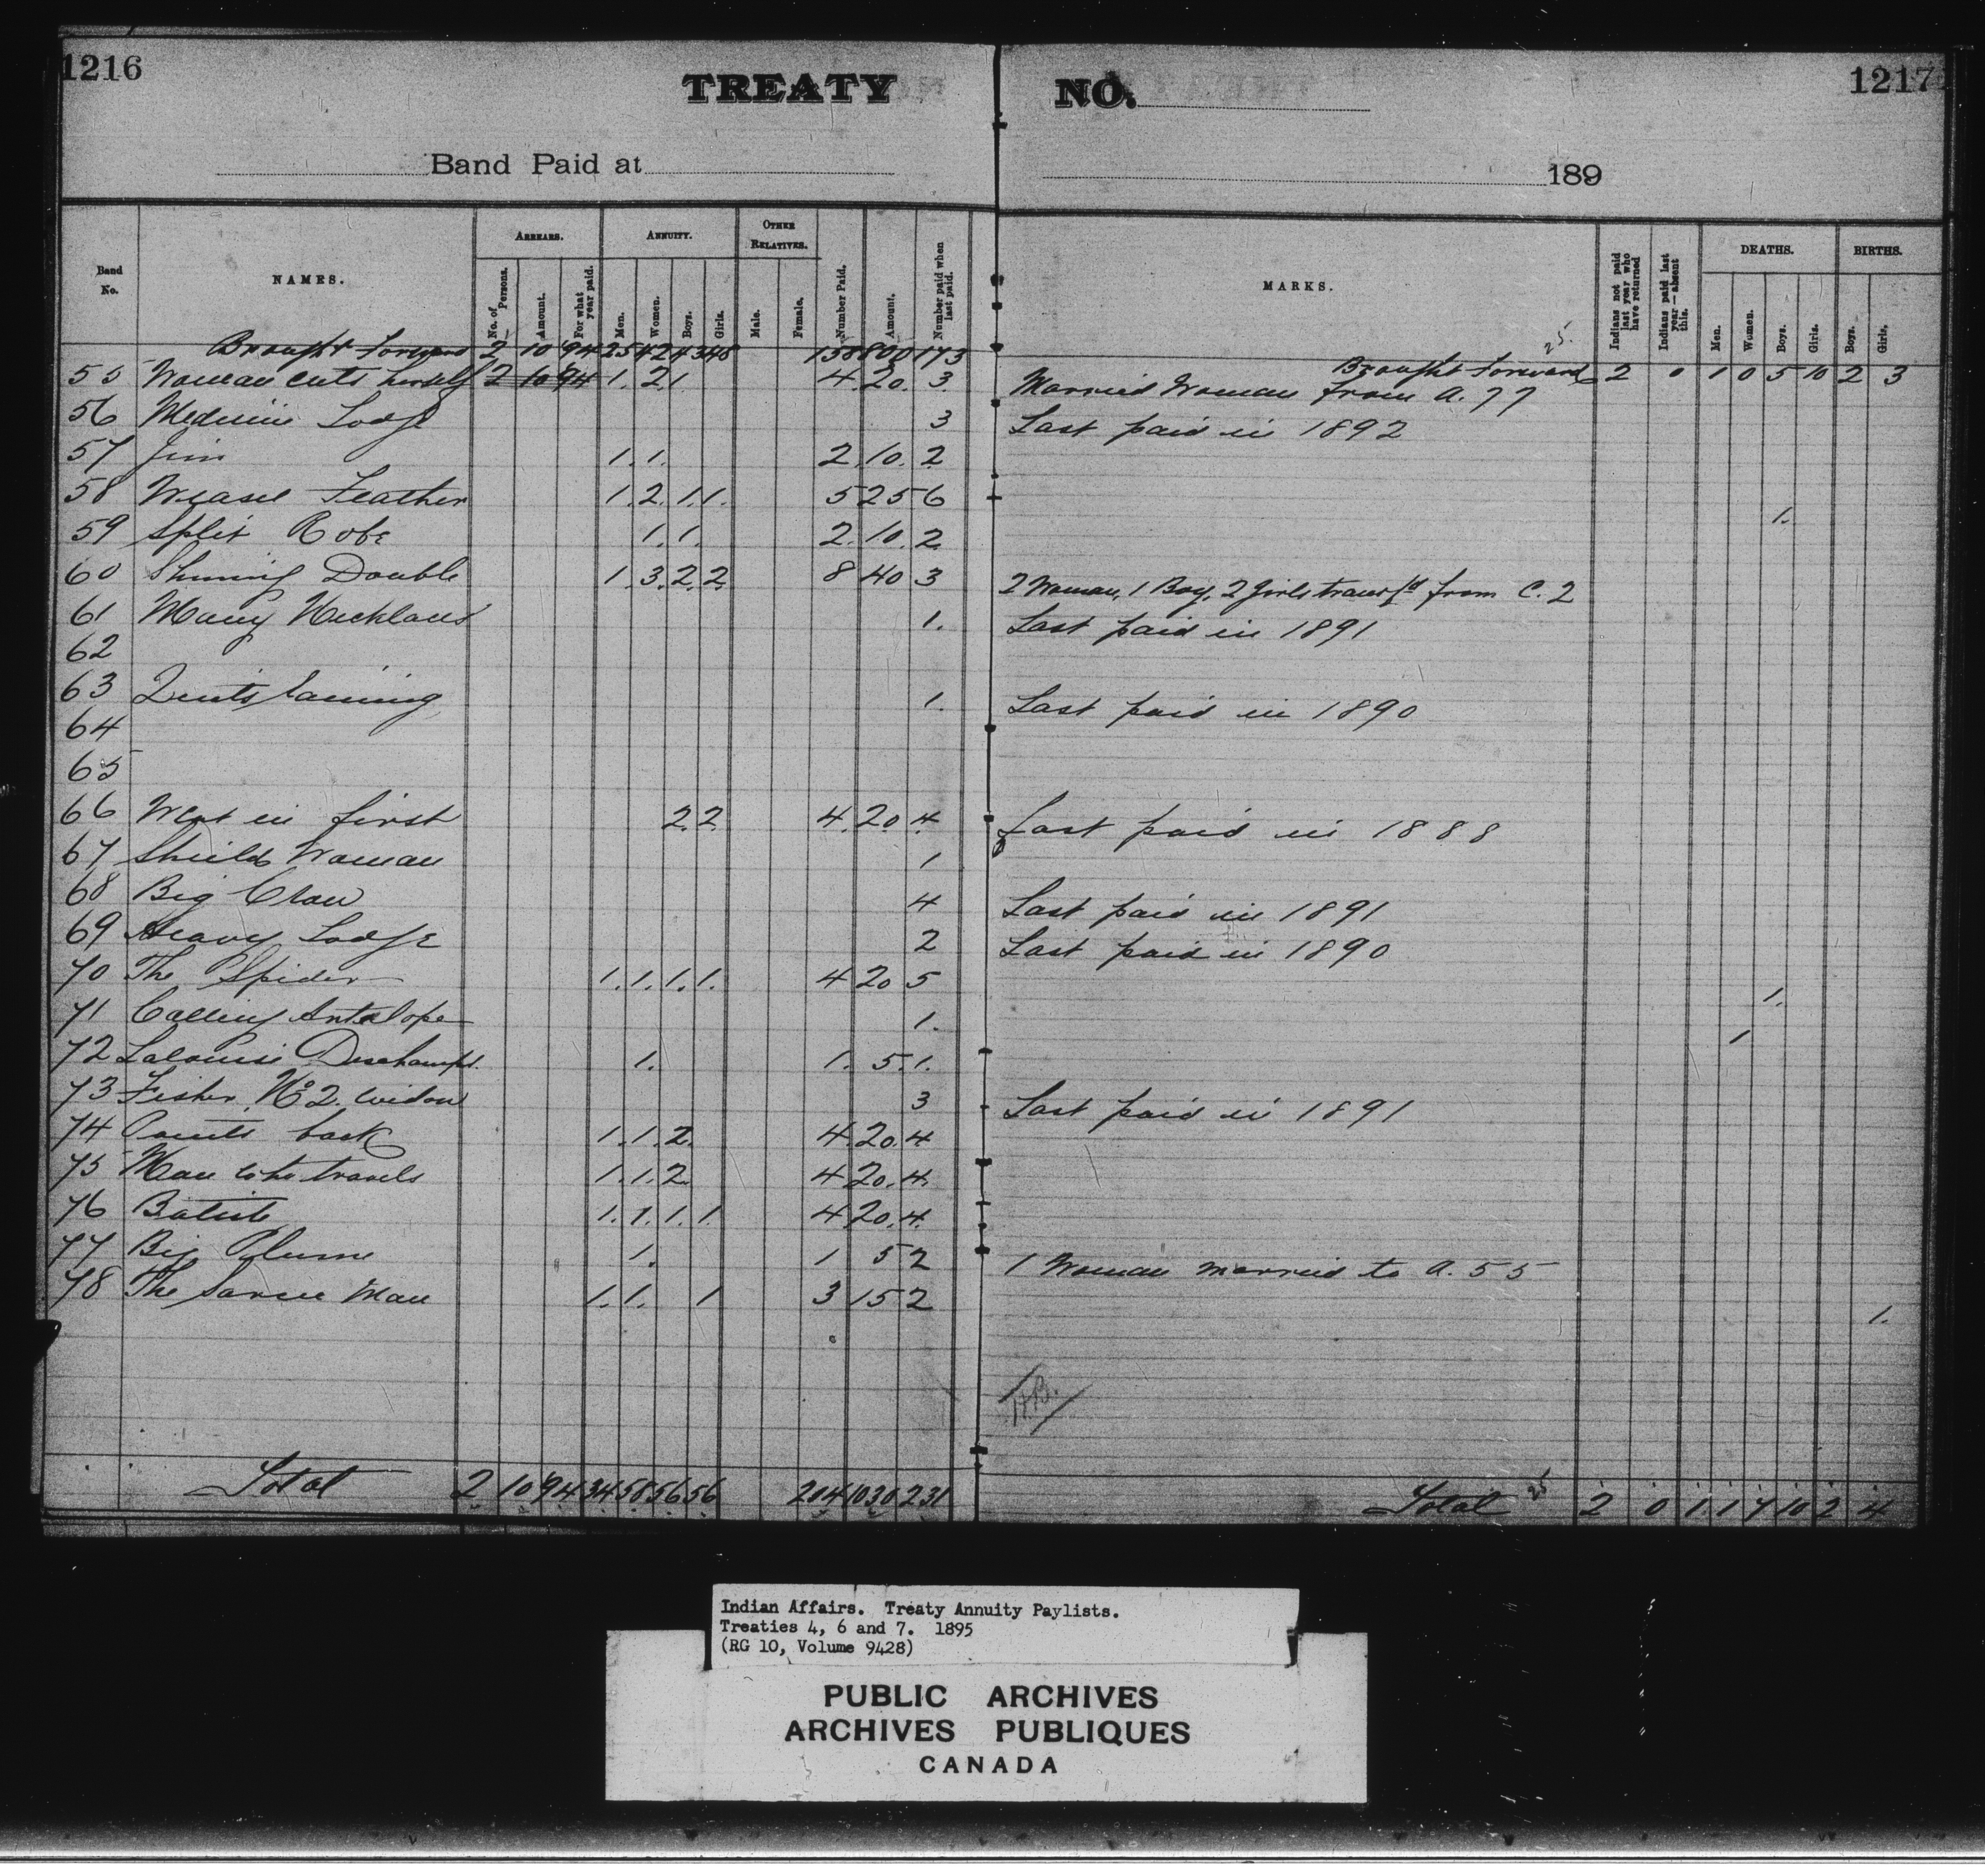 1216
TREATY NO.
1217
Band Paid at 189
Band No.
NAMES.
ARREARS.
No. of Persons.
Amount.
For what year paid.
ANNUITY.
Men.
Women.
Boys.
Girls.
OTHER RELATIVES.
Male.
Female.
Number Paid.
Amount.
Number paid when last paid.
MARKS.
Indians not paid last year who have returned
Indians paid last year—absent this.
DEATHS.
Men.
Women.
Boys.
Girls.
BIRTHS.
Boys.
Girls,
Brought forward 2 10 94 25 42 43 48 158 800 173 Brought forward 25. 2 0 1 0 5 10 2 3
55 Woman cuts herself 2 10 94 1. 2 1 4. 20. 3. Married Woman from A. 77
56 Medicine Lodge 3 Last paid in 1892
57 Jim 1. 1. 2. 10. 2
58 Weasel Feather 1. 2. 1. 1. 5 25 6 1.
59 Split Robe 1. 1. 2. 10. 2.
60 Shining Double 1. 3. 2. 2 8 40 3 2 Woman, 1 Boy, 2 Girls transfd from C. 2
61 Many Necklaces 1. Last paid in 1891
62
63 1. Last paid in 1890
64
65
66 Went in first 2. 2 4. 20. 4. Last paid in 1888
67 Shield Woman 1
68 Big Claw 4 Last paid in 1891
69 Heavy Lodge 2 Last paid in 1890
70 The Spider 1. 1. 1. 1. 4 20 5 1.
71 Calling Antelope 1. 1
72 Lalouise Deschamps. 1. 1. 5. 1.
73 Fisher No 2. widow 3 Last paid in 1891
74 Paints back 1. 1. 2. 4. 20. 4
75 Man who travels 1. 1. 2. 4 20. 4.
76 Batiste 1. 1. 1. 1. 4 20. 4.
77 Big Plume 1. 1 5 2 1 Woman married to A. 55
78 The Sarcee Man 1. 1. 1 3 15 2 1.
H.B.
Total 2 10 94 34 58 56 56 204 1030 231 Total 25 2 0 1. 1 7 10 2 4
Indian Affairs. Treaty Annuity Paylists.
Treaties 4, 6 and 7. 1895
(RG 10, Volume 9428)
PUBLIC ARCHIVES
ARCHIVES PUBLIQUES
CANADA